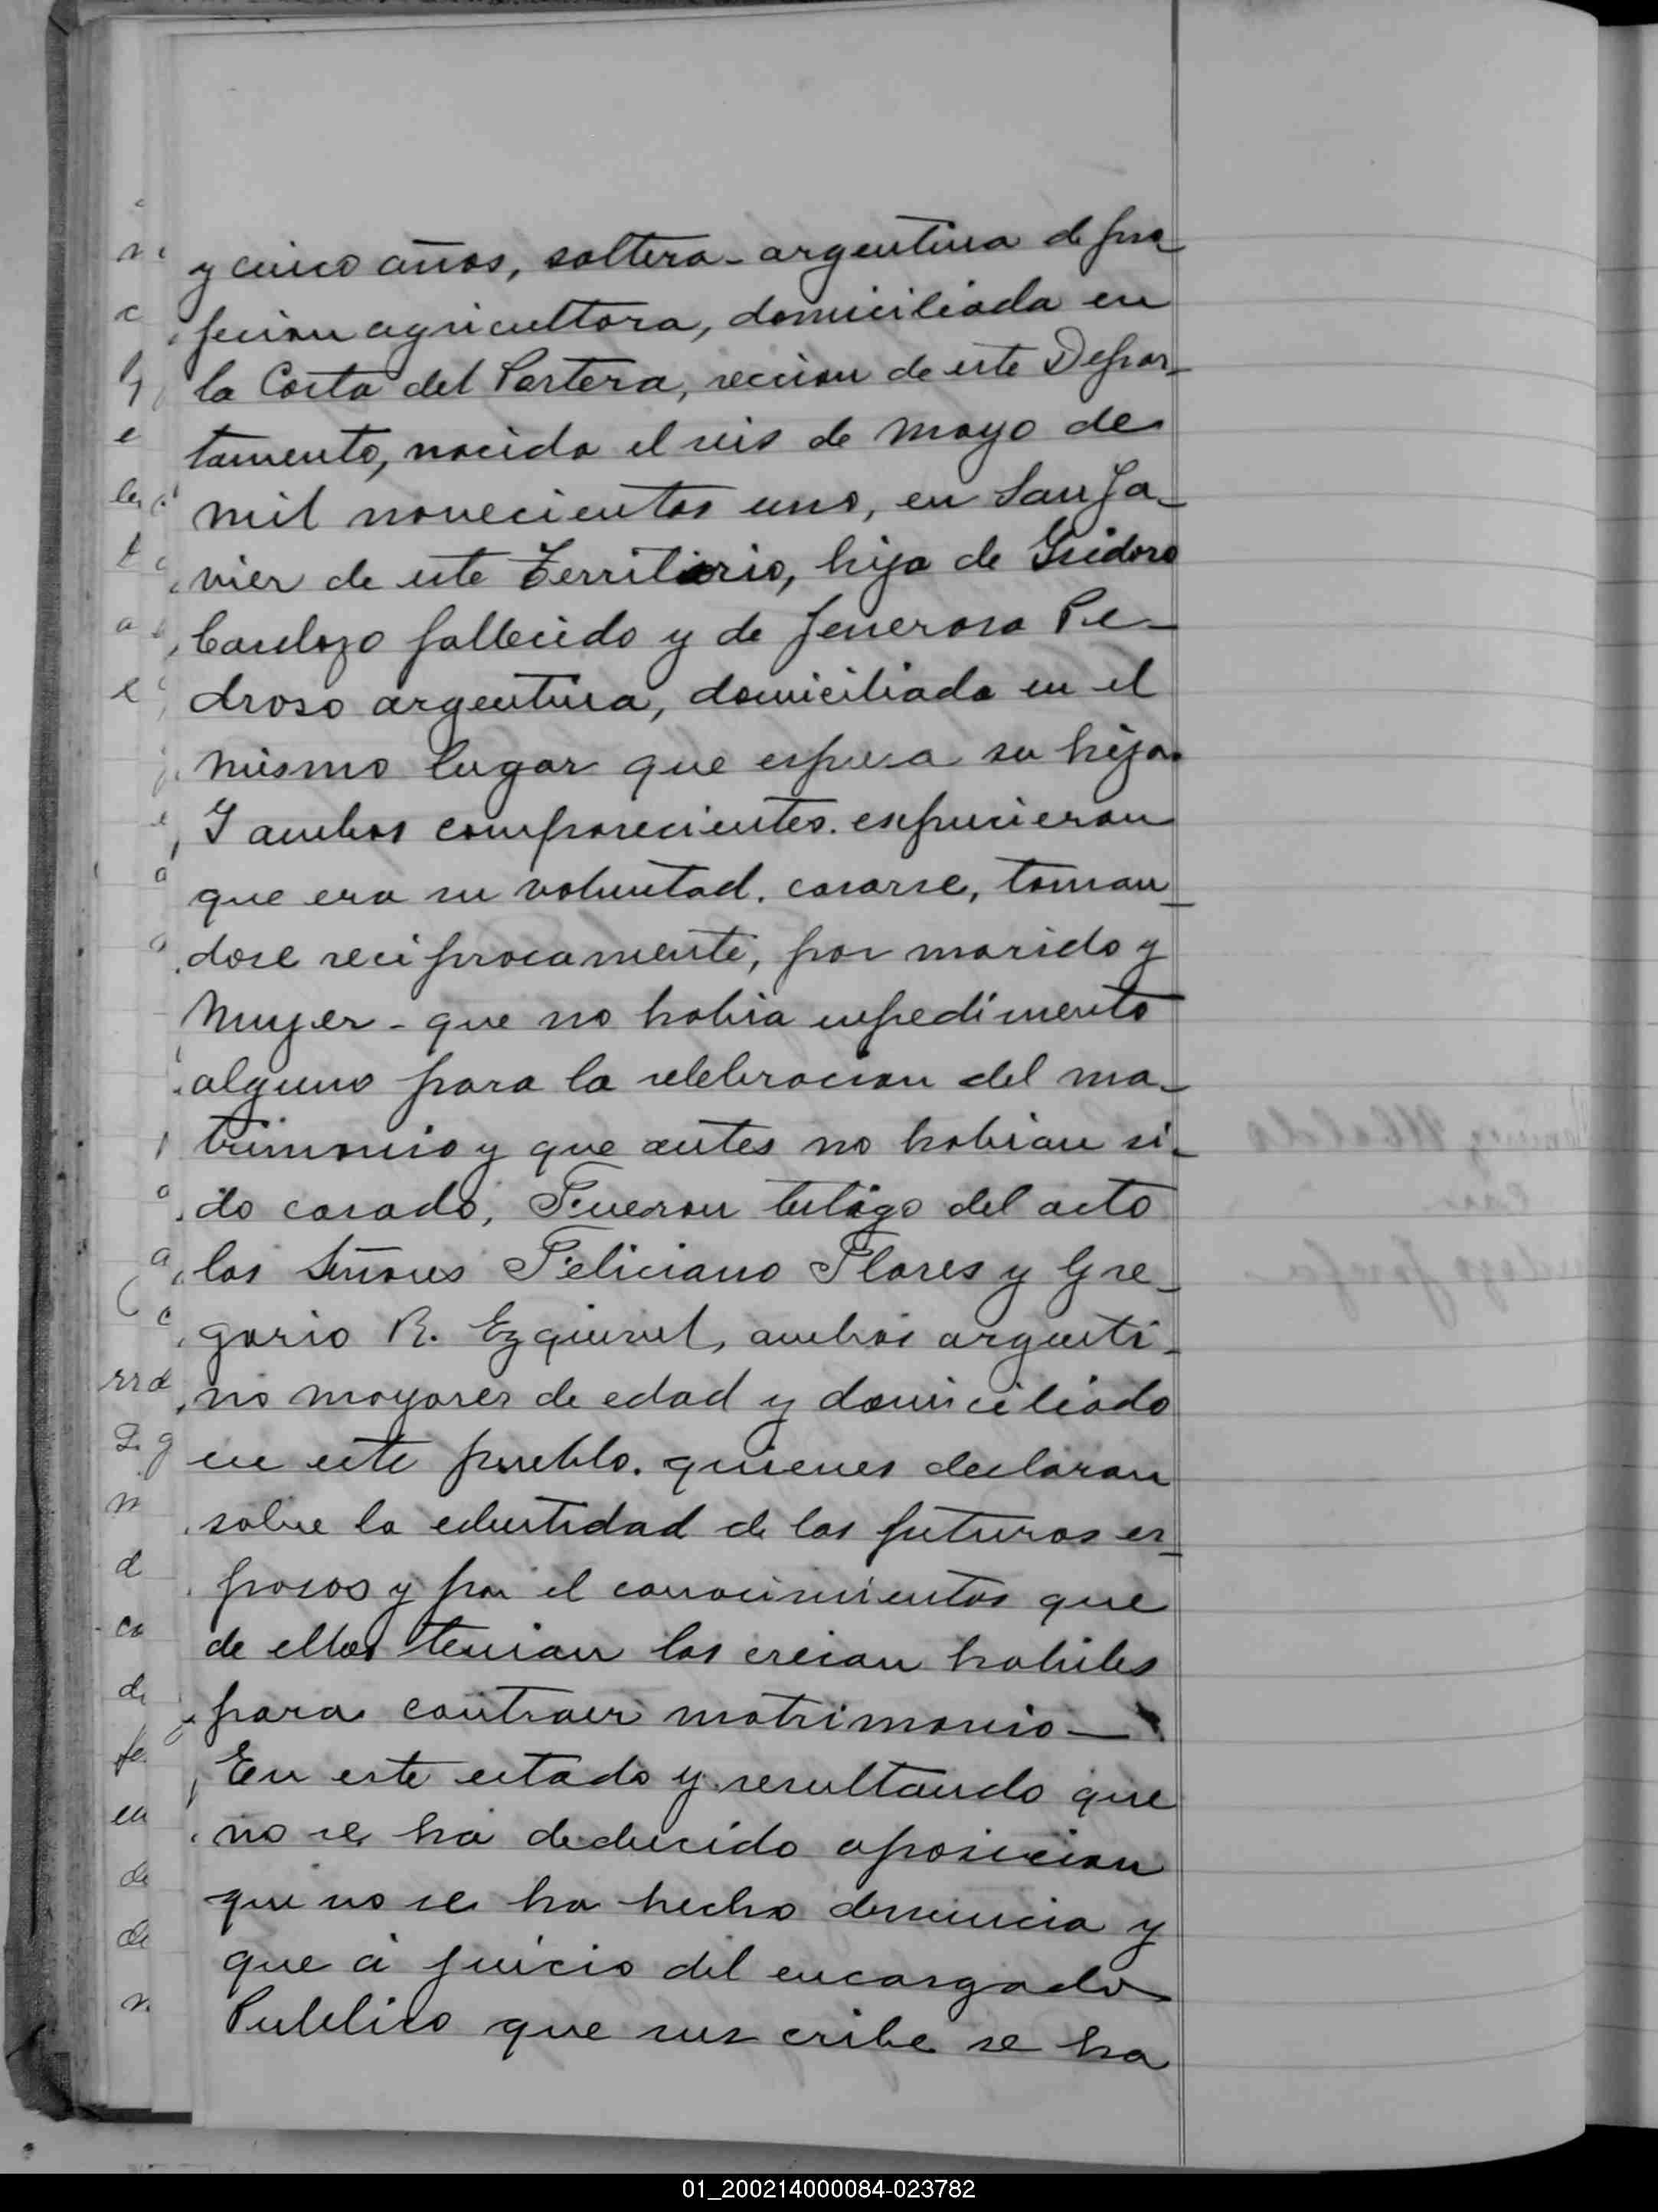 y cinco años, soltera - argentina de pro-
fecion agricultora, domiciliada en
la Costa del Portera, seccion de este Depar-
tamento, nacida el seis de mayo de
mil novecientos uno, en San Ja-
vier de este Territorio, hija de Isidoro
Cardozo fallecido y de Jenerosa Pe-
droso argentina, domiciliada en el
mismo lugar que espresa su hija.
I ambos comparecientes. espucieron
que era su voluntad. casarse, toman-
dose reciprocamente, por marido y
Muyer - que no habia inpedimento
alguno para la selebracion del ma-
trimonio y que antes no habian si-
do casado, Fueron testigo del acto
los Señores Feliciano Flores y Gre-
gorio R. Ezquivel, ambos argenti-
no mayores de edad y domiciliado
en este pueblo. quienes declaran
sobre la edentidad de los futuros es-
posos y por el conocimientos que
de ellos tenian los creian habiles
para contraer matrimonio -
En este estado y resultando que
no se ha deducido oposicion
que no se ha hecho denuncia y
que á juicio del encargado
Publico que sus cribe se ha
01_200214000084-023782